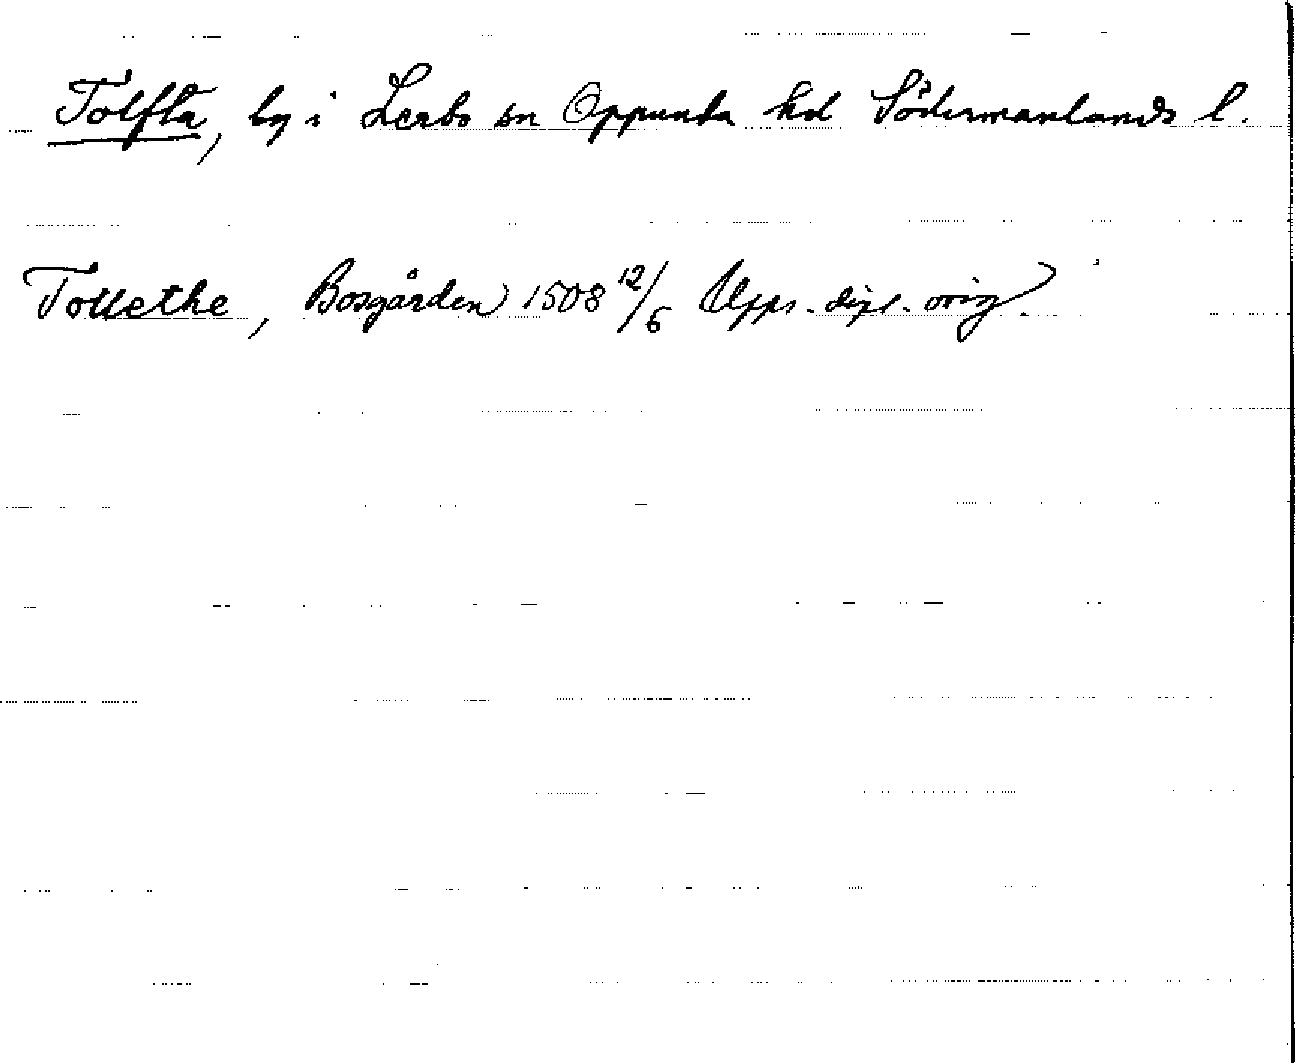 Tolfta, by i Lerbo sn Oppunda hd Södermanlands l.
Tollethe, Bosgården 1508 12/6 Upps. dipl. orig.